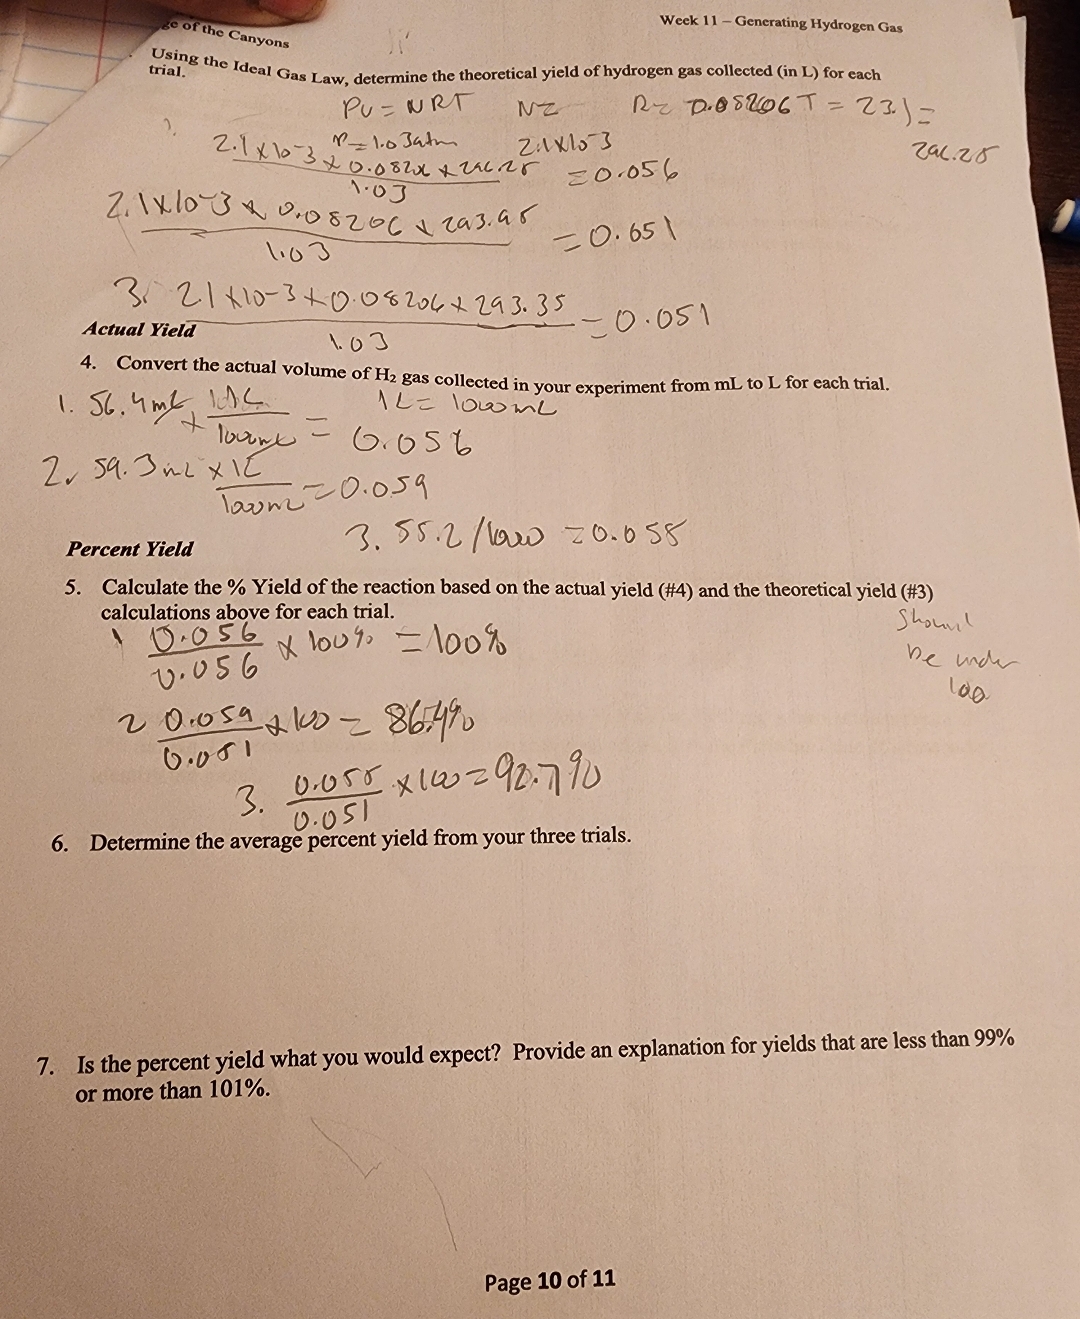 ge of the Canyons
Week 11 – Generating Hydrogen Gas
Using the Ideal Gas Law, determine the theoretical yield of hydrogen gas collected (in L) for each
trial.
PV = NRT N= R= 0.08206 T = 23.1=
296.25
P=1.03atm 2.1x10-3
2.1x10-3 x 0.08206 x 296.25 = 0.056
1.03
2.1x10-3 x 0.08206 x 293.95 = 0.051
1.03
3. 21x10-3x0.08206x293.35 = 0.051
1.03
Actual Yield
4. Convert the actual volume of H₂ gas collected in your experiment from mL to L for each trial.
1L= 1000mL
1. 56.4mL x 1L = 0.056
1000mL
2. 59.3mL x 1L = 0.059
1000mL
3. 55.2/1000 = 0.055
Percent Yield
5. Calculate the % Yield of the reaction based on the actual yield (#4) and the theoretical yield (#3)
calculations above for each trial.
Should
be under
100
1 0.056 x 100% = 100%
0.056
2 0.059 x100 = 86.4%
0.051
3. 0.055 x100=92.7%
0.051
6. Determine the average percent yield from your three trials.
7. Is the percent yield what you would expect? Provide an explanation for yields that are less than 99%
or more than 101%.
Page 10 of 11